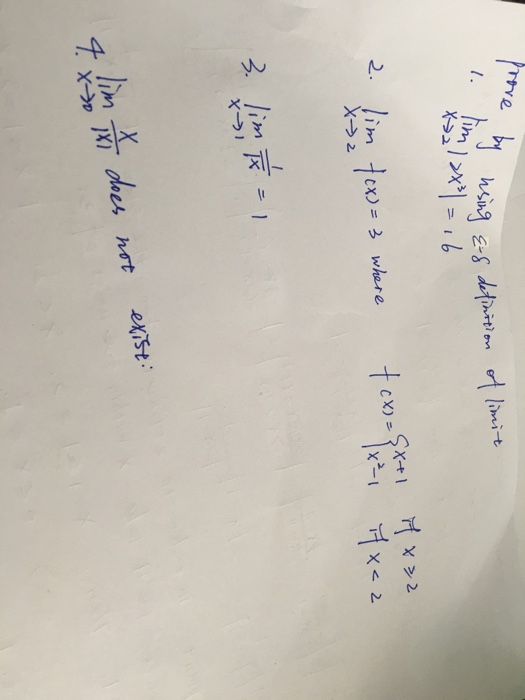 Prove by using ε-δ definition of limit
1. lim x→2 |2x³| = 16
2. lim x→2 f(x) = 3 where f(x) = { x+1 if x ≥ 2
x²-1 if x < 2
3. lim x→1 1/√x = 1
4. lim x→0 x/|x| does not exist.